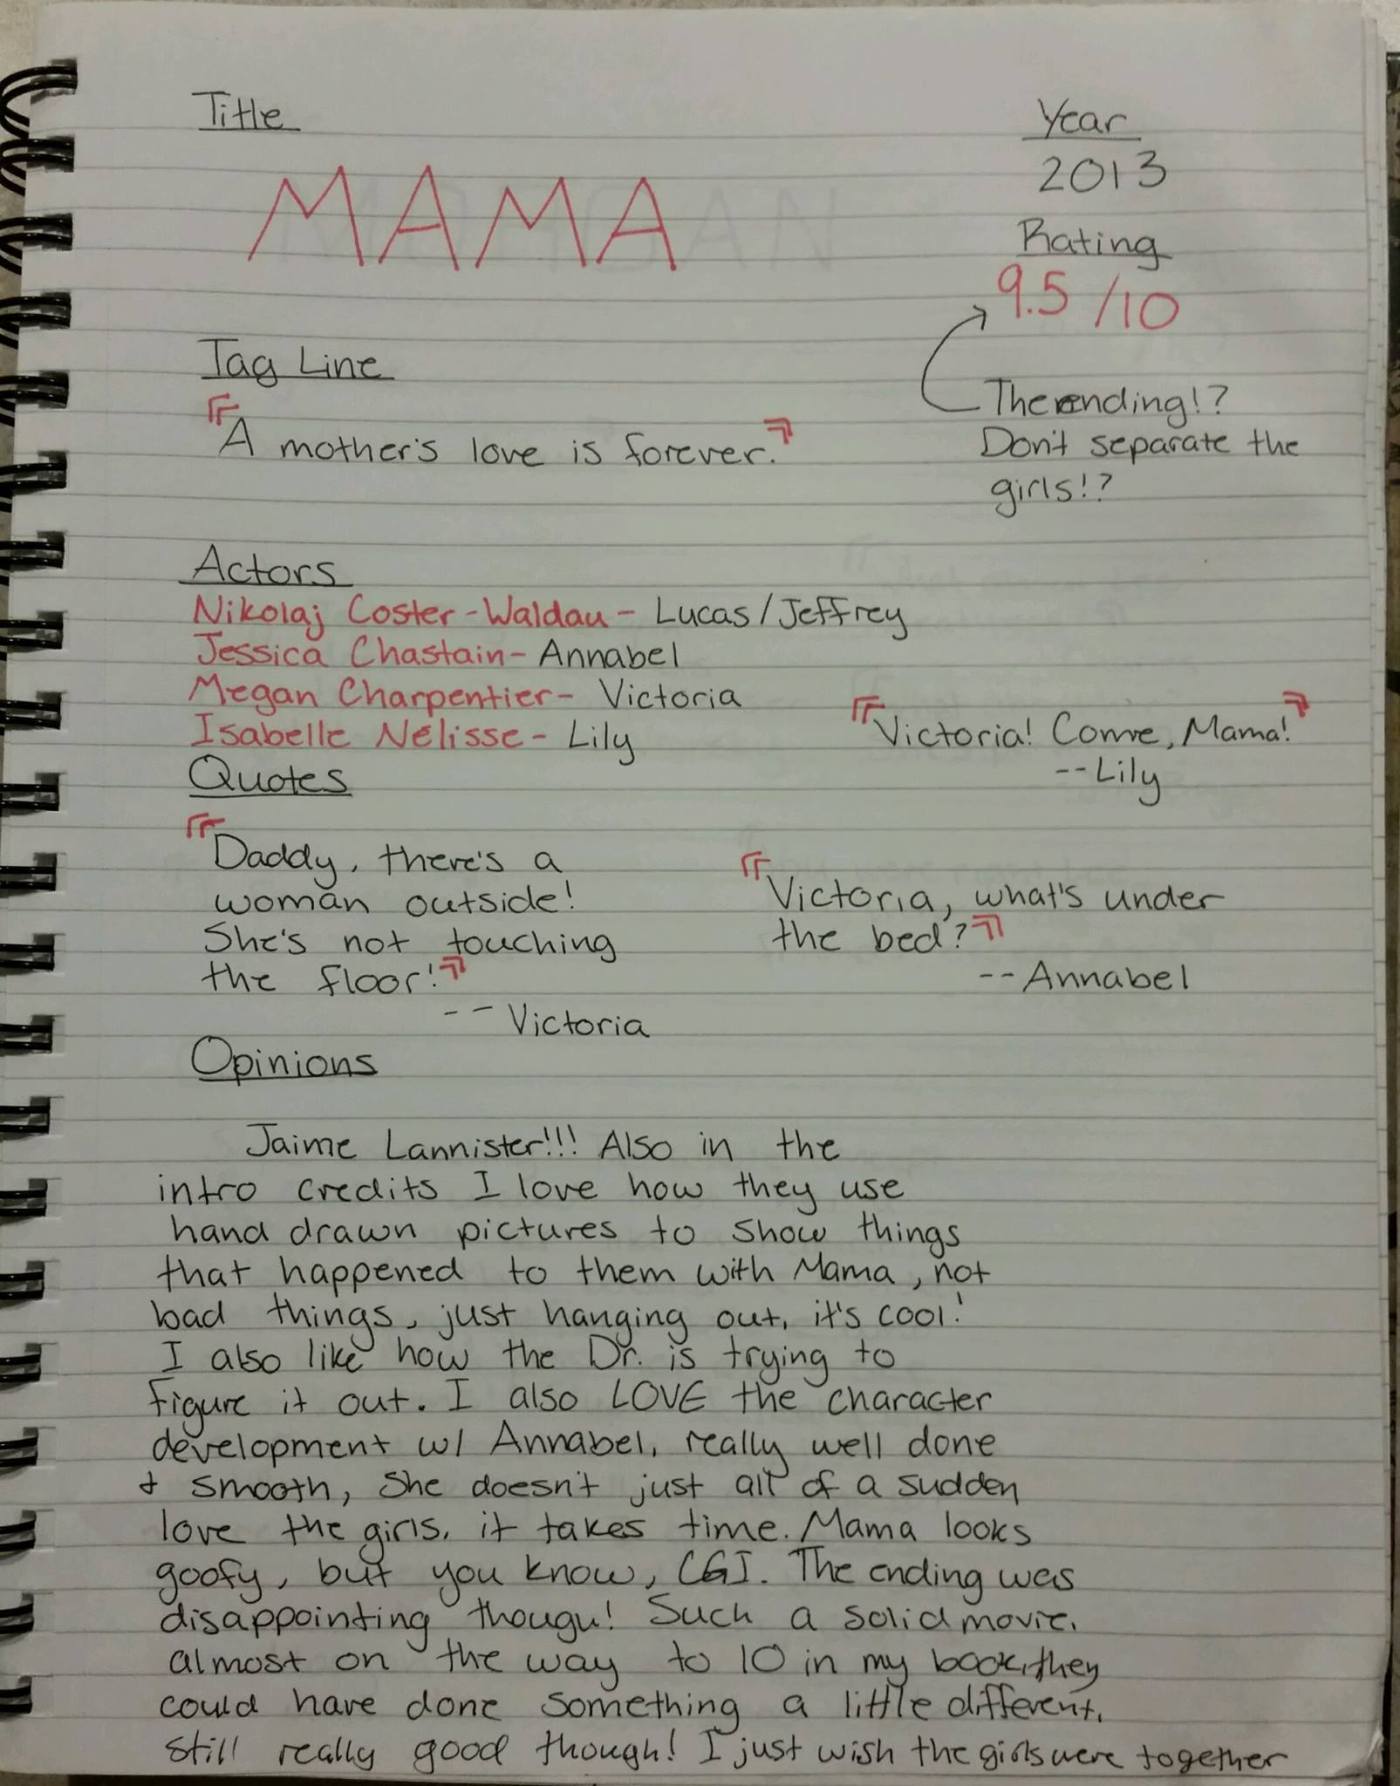 Title
MAMA
Year
2013
Rating
9.5/10
The ending!?
Don't separate the
girls!?
Tag Line
"A mother's love is forever."
Actors
Nikolaj Coster-Waldau- Lucas/Jeffrey
Jessica Chastain- Annabel
Megan Charpentier- Victoria
Isabelle Nélisse- Lily
"Victoria! Come, Mama!"
--Lily
Quotes
"Daddy, there's a
woman outside!
She's not touching
the floor!"
-- Victoria
"Victoria, what's under
the bed?"
--Annabel
Opinions
Jaime Lannister!!! Also in the
intro credits I love how they use
hand drawn pictures to show things
that happened to them with Mama, not
bad things, just hanging out, it's cool!
I also like how the Dr. is trying to
figure it out. I also LOVE the character
development w/ Annabel, really well done
& smooth, She doesn't just all of a sudden
love the girls, it takes time. Mama looks
goofy, but you know, CGI. The ending was
disappointing thougu! Such a solid movie,
almost on the way to 10 in my book, they
could have done something a little different,
still really good though! I just wish the girls were together